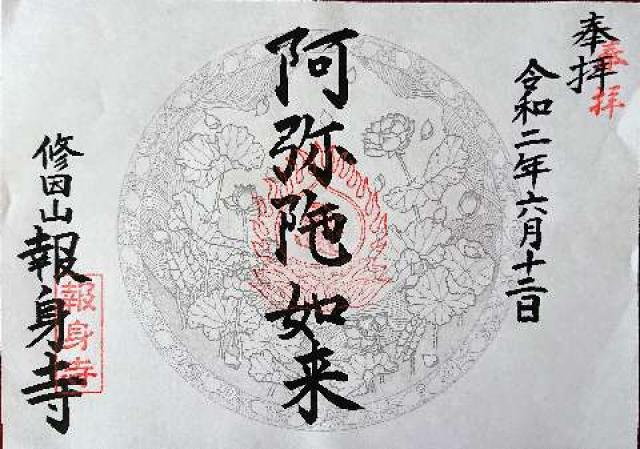 奉拝
奉拝
令和二年六月十二日
阿弥陀如来
修因山
報身寺
報身寺